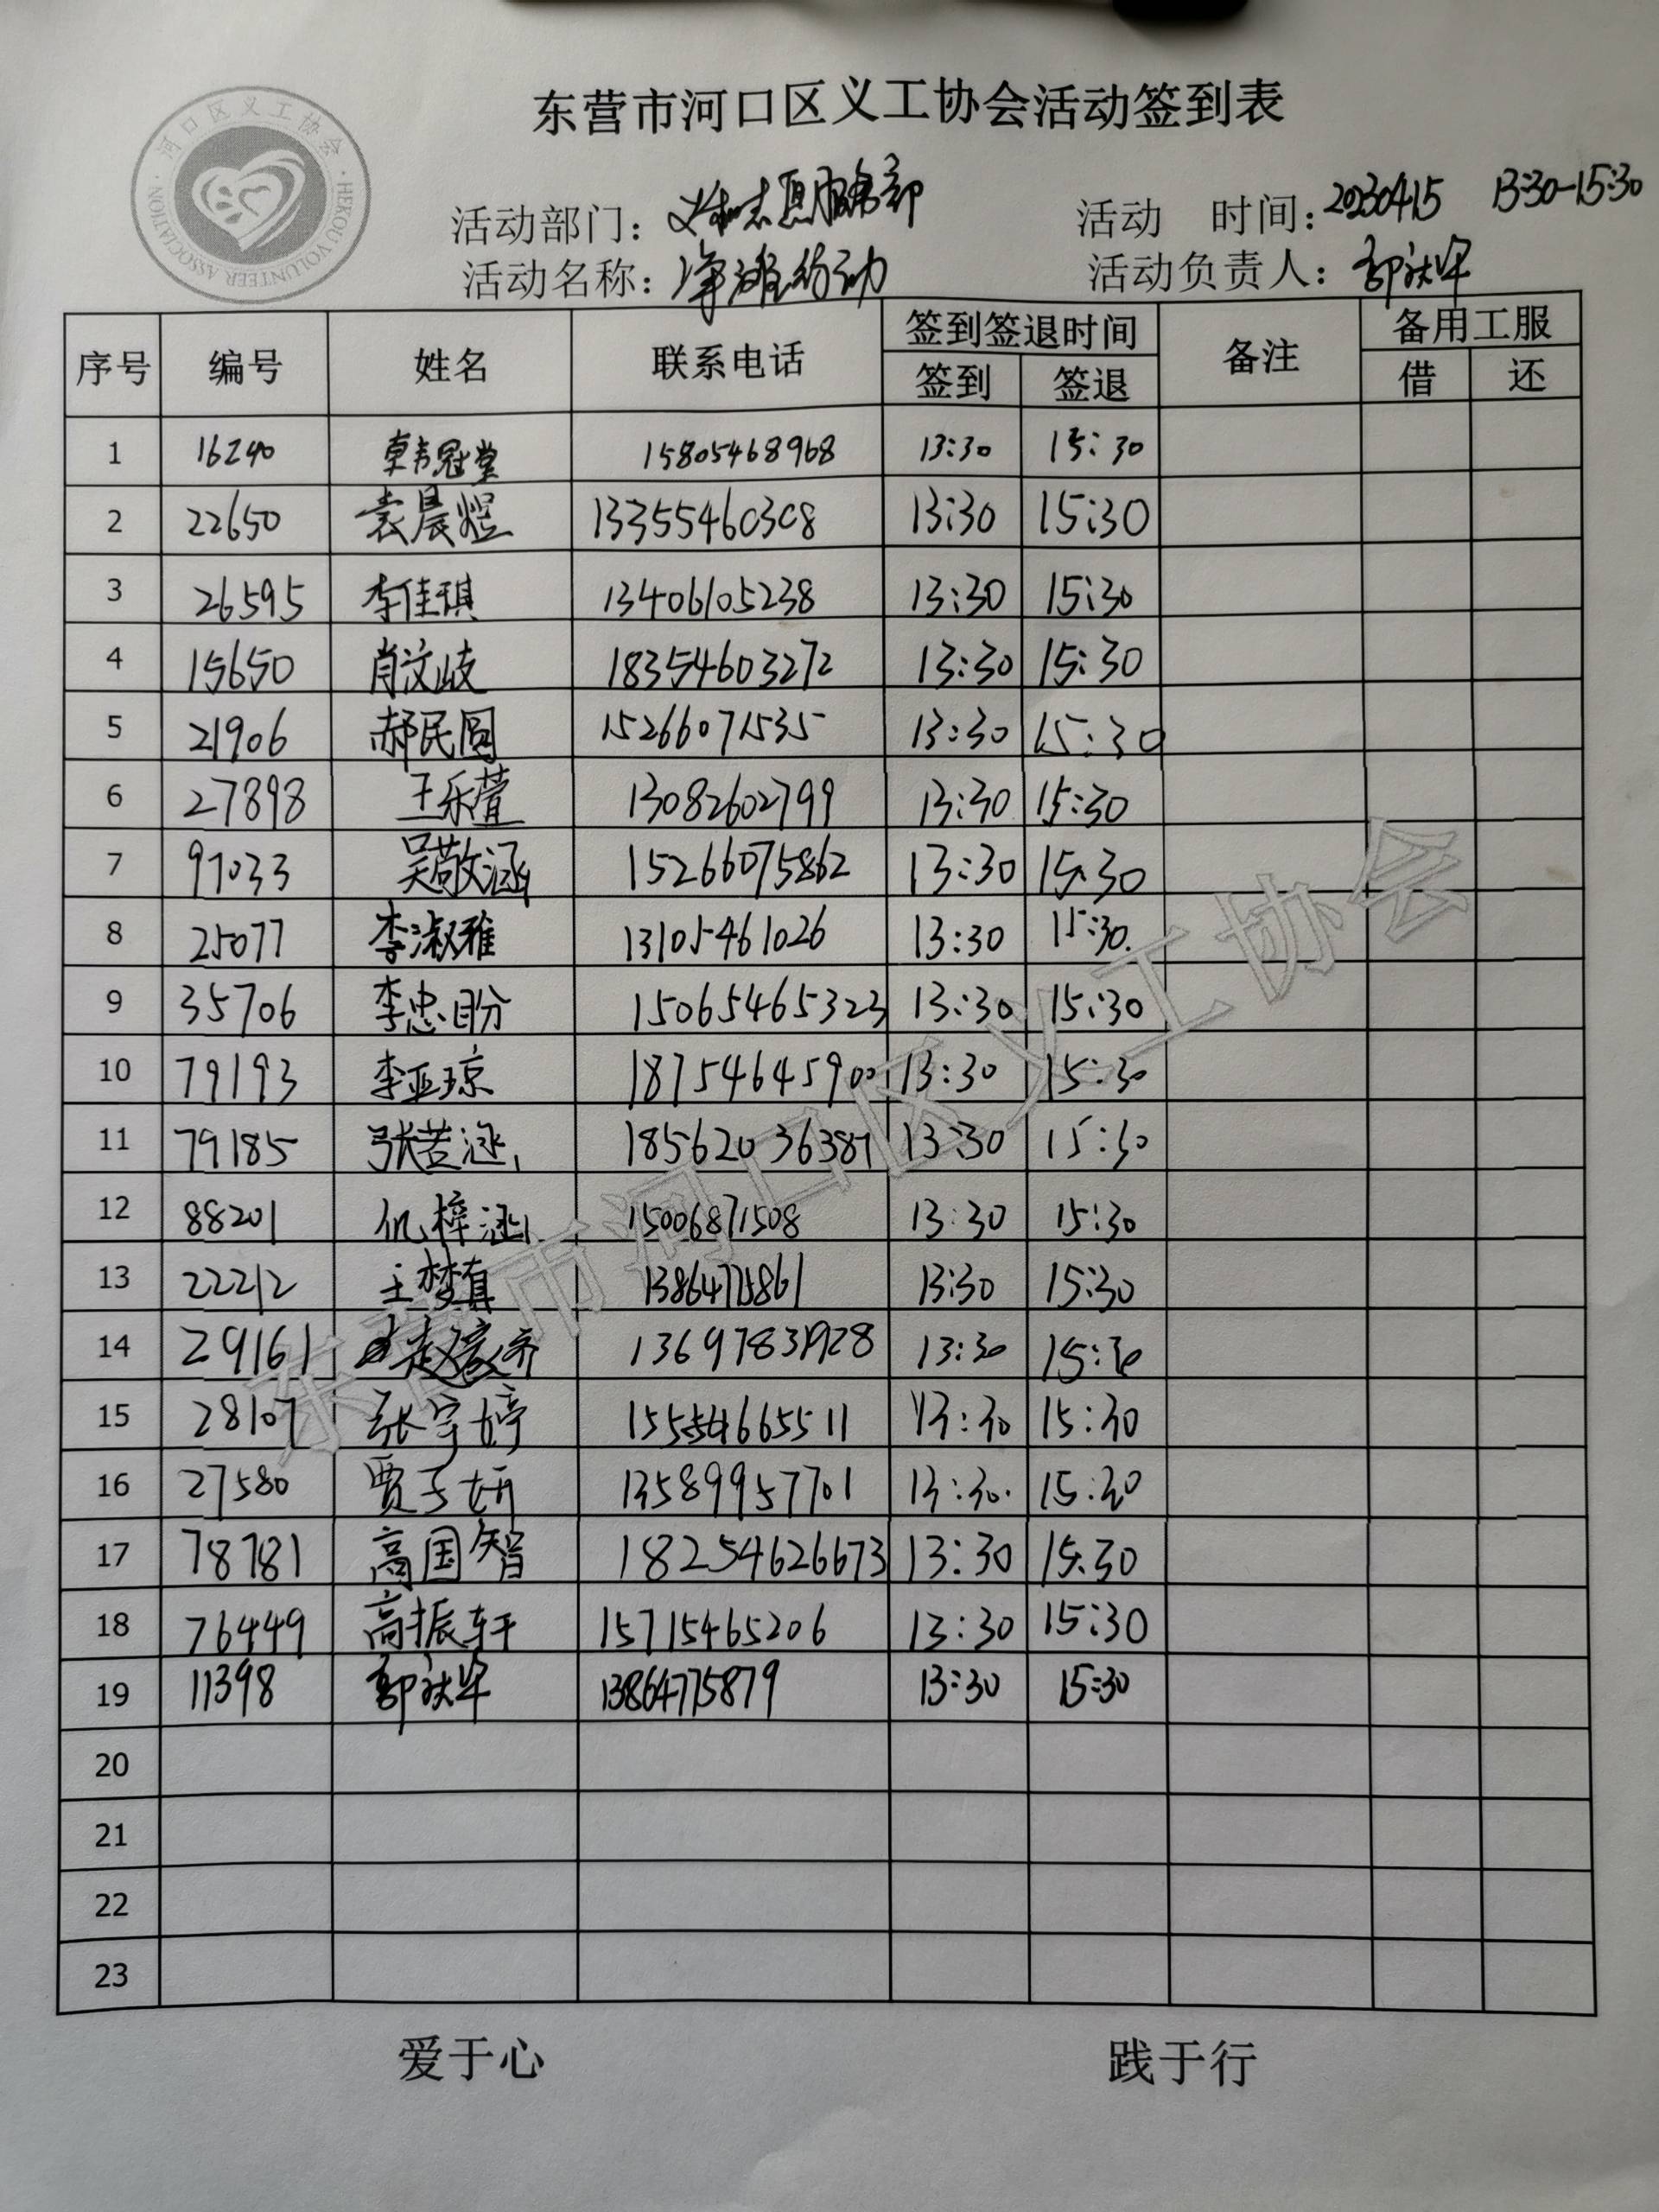 东营市河口区义工协会活动签到表
河口区义工协会
HEKOU VOLUNTEER ASSOCIATION
活动部门：义和志愿服务部 活动 时间：20230415 13:30-15:30
活动名称：净滩行动 活动负责人：郭秋华
序号 编号 姓名 联系电话 签到签退时间 备注 备用工服
签到 签退 借 还
1 16240 韩冠堂 15805468968 13:30 15:30
2 22650 袁晨煜 13355460308 13:30 15:30
3 26595 李佳琪 13406105238 13:30 15:30
4 15650 肖汶岐 18354603272 13:30 15:30
5 21906 郝民圆 15266071535 13:30 15:30
6 27898 王乐萱 13082602799 13:30 15:30
7 97033 吴敬涵 15266075862 13:30 15:30
8 25077 李淑雅 13105461026 13:30 15:30.
9 35706 李忠盼 15065465323 13:30 15:30
10 79193 李亚琼 18754645900 13:30 15:30
11 79185 张若涵 18562036387 13:30 15:30
12 88201 仉梓涵 15006871508 13:30 15:30
13 22212 王梦真 13864775861 13:30 15:30
14 29161 赵豪齐 13697831928 13:30 15:30
15 28107 张宇婷 15554665511 13:30 15:30
16 27580 贾子妍 13589957701 13:30. 15:30
17 78781 高国智 18254626673 13:30 15:30
18 76449 高振轩 15715465206 13:30 15:30
19 11398 郭秋华 13864775879 13:30 15:30
20
21
22
23
东营市河口区义工协会
爱于心 践于行